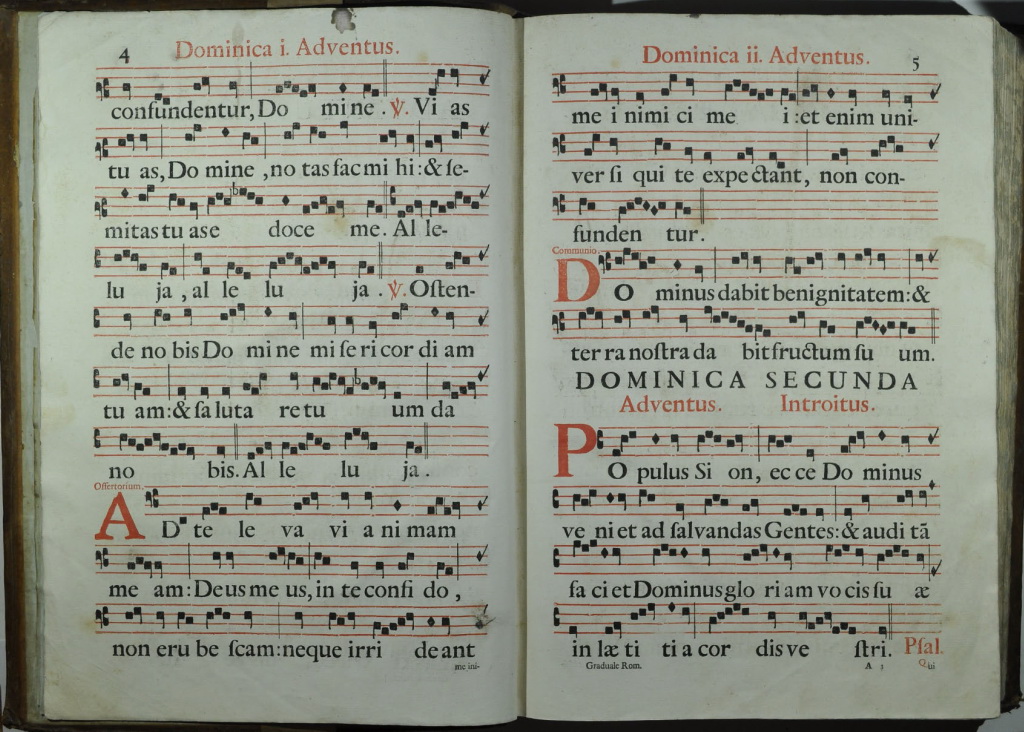 4
Dominica i. Adventus.
confundentur, Do mine. ℣. Vi as
tu as, Do mine, no tas fac mi hi: & ſe-
mitas tu as e doce me. Al le-
lu ja, al le lu ja. ℣. Oſten-
de no bis Do mi ne mi ſe ri cor di am
tu am: & ſa luta re tu um da
no bis. Al le lu ja.
Offertorium.
A D te le va vi a ni mam
me am: Deus me us, in te confi do,
non eru be ſcam: neque irri deant
me ini-
Dominica ii. Adventus.
5
me i nimi ci me i: et enim uni-
ver ſi qui te expectant, non con-
funden tur.
Communio.
D O minus dabit benignitatem: &
ter ra noſtra da bit fructum ſu um.
DOMINICA SECUNDA
Adventus. Introitus.
P O pulus Si on, ec ce Do minus
ve ni et ad ſalvandas Gentes: & audi tã
fa ci et Dominus glo ri am vo cis ſu æ
in læ ti ti a cor dis ve ſtri. Pſal.
Graduale Rom. A 3 Qui